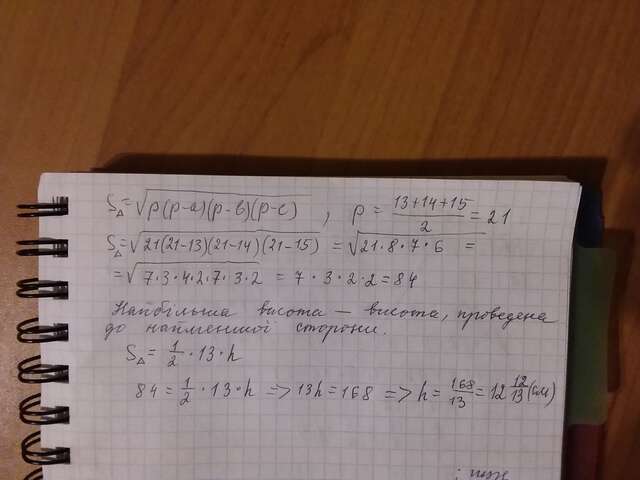 S△ = √p(p-a)(p-b)(p-c) , p = 13+14+15/2 = 21
S△ = √21(21-13)(21-14)(21-15) = √21·8·7·6 =
= √7·3·4·2·7·3·2 = 7·3·2·2 = 84
Найбільша висота – висота, проведена
до найменшої сторони.
S△ = 1/2 · 13 · h
84 = 1/2 · 13 · h => 13h = 168 => h = 168/13 = 12 12/13 (см)